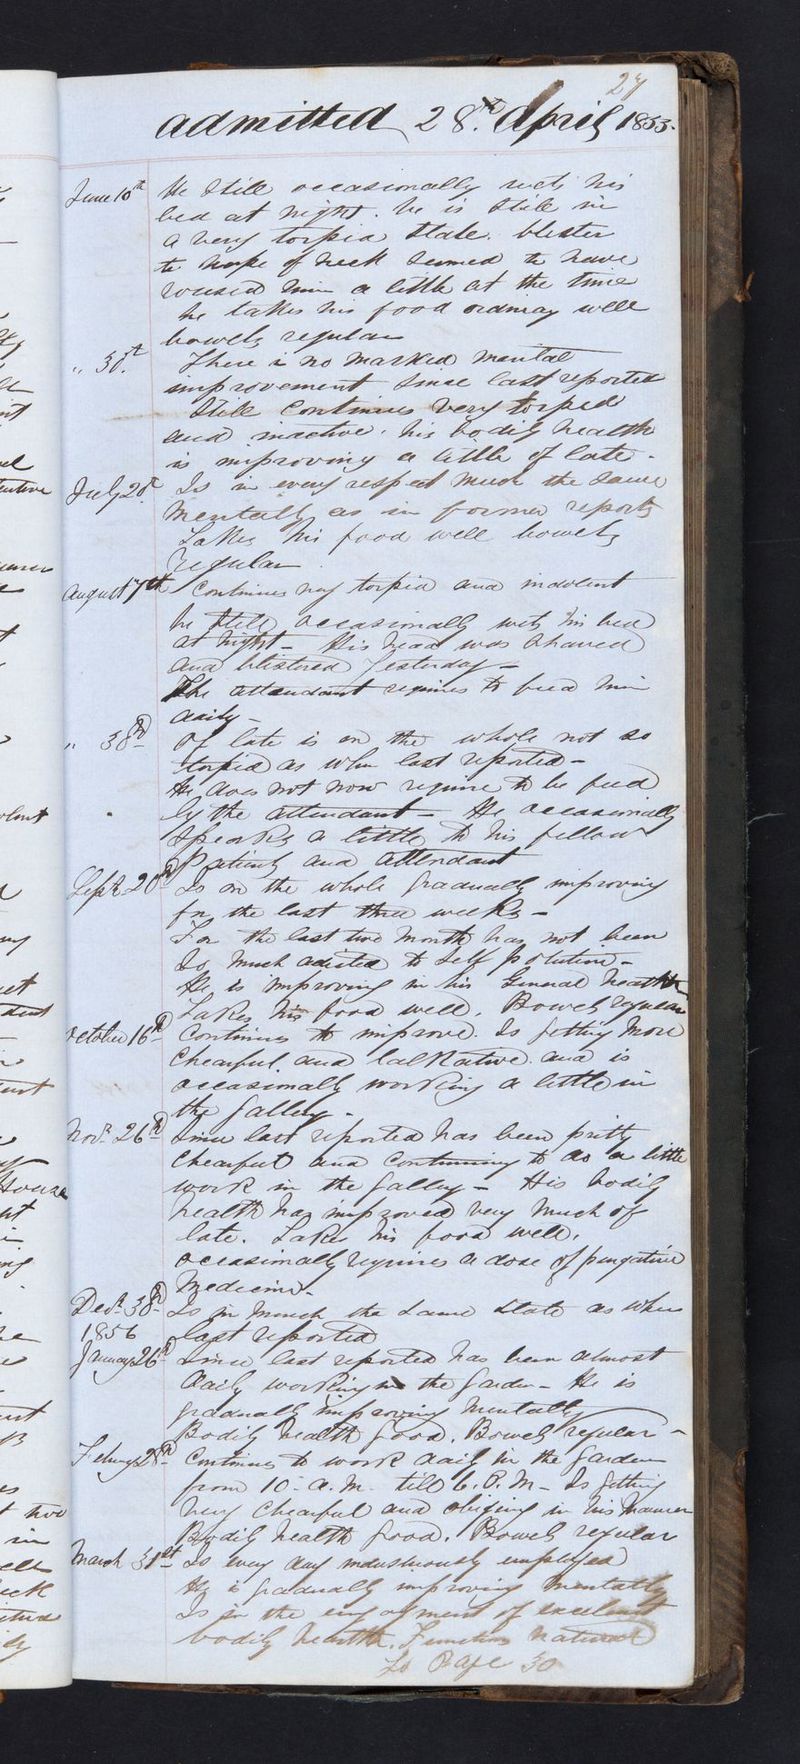 27
admitted 28th April 1855.
June 10th He still occasionally wets his
bed at night. he is still in
a very torpid state. blister
to nape of neck seemed to have
roused him a little at the time
he takes his food ordinary well
bowels regular
" 30th There is no marked mental
improvement since last reported
Still continues very torpid
and inactive. his bodily health
is improving a little of late.
July 20th Is in every respect much the same
mentally as in former reports
Takes his food well bowels
regular
August 7th Continues very torpid and indolent
he still occasionally wets his bed
at night - His head was shaved
and blistered yesterday -
The attendant requires to feed him
daily -
" 30th Of late is on the whole not so
torpid as when last reported -
He does not now require to be feed
by the attendant - He occasionally
speaks a little to his fellow
Patients and attendant
Septr 20th Is on the whole gradually improving
for the last three weeks -
For the last two month has not been
so much adicted to self polution -
He is improving in his General health
Takes his food well. Bowels regular
October 16th Continues to improve. Is getting more
Chearful and talkative and is
occasionally working a little in
the gallery -
Novr 26th Since last reported has been pritty
Chearful and continuing to do a little
work in the gallery - His bodily
health has improved very much of
late. Takes his food well.
occasionally requires a dose of purgative
Medicine -
Decr 30th Is in much the same state as when
1856 last reported
January 26th Since last reported has been almost
daily working in the garden - He is
gradually improving mentally
Bodily health good. Bowels regular -
Febuy 28th Continues to work daily in the garden
from 10 - a.m. till 6. P.M - Is getting
very Chearful and obliging in his manner
Bodily health good. Bowels regular
March 31st Is every day industriously employed
He is gradually improving mentally
Is in the enjoyment of excelent
bodily health. Functions natural
To Page 30